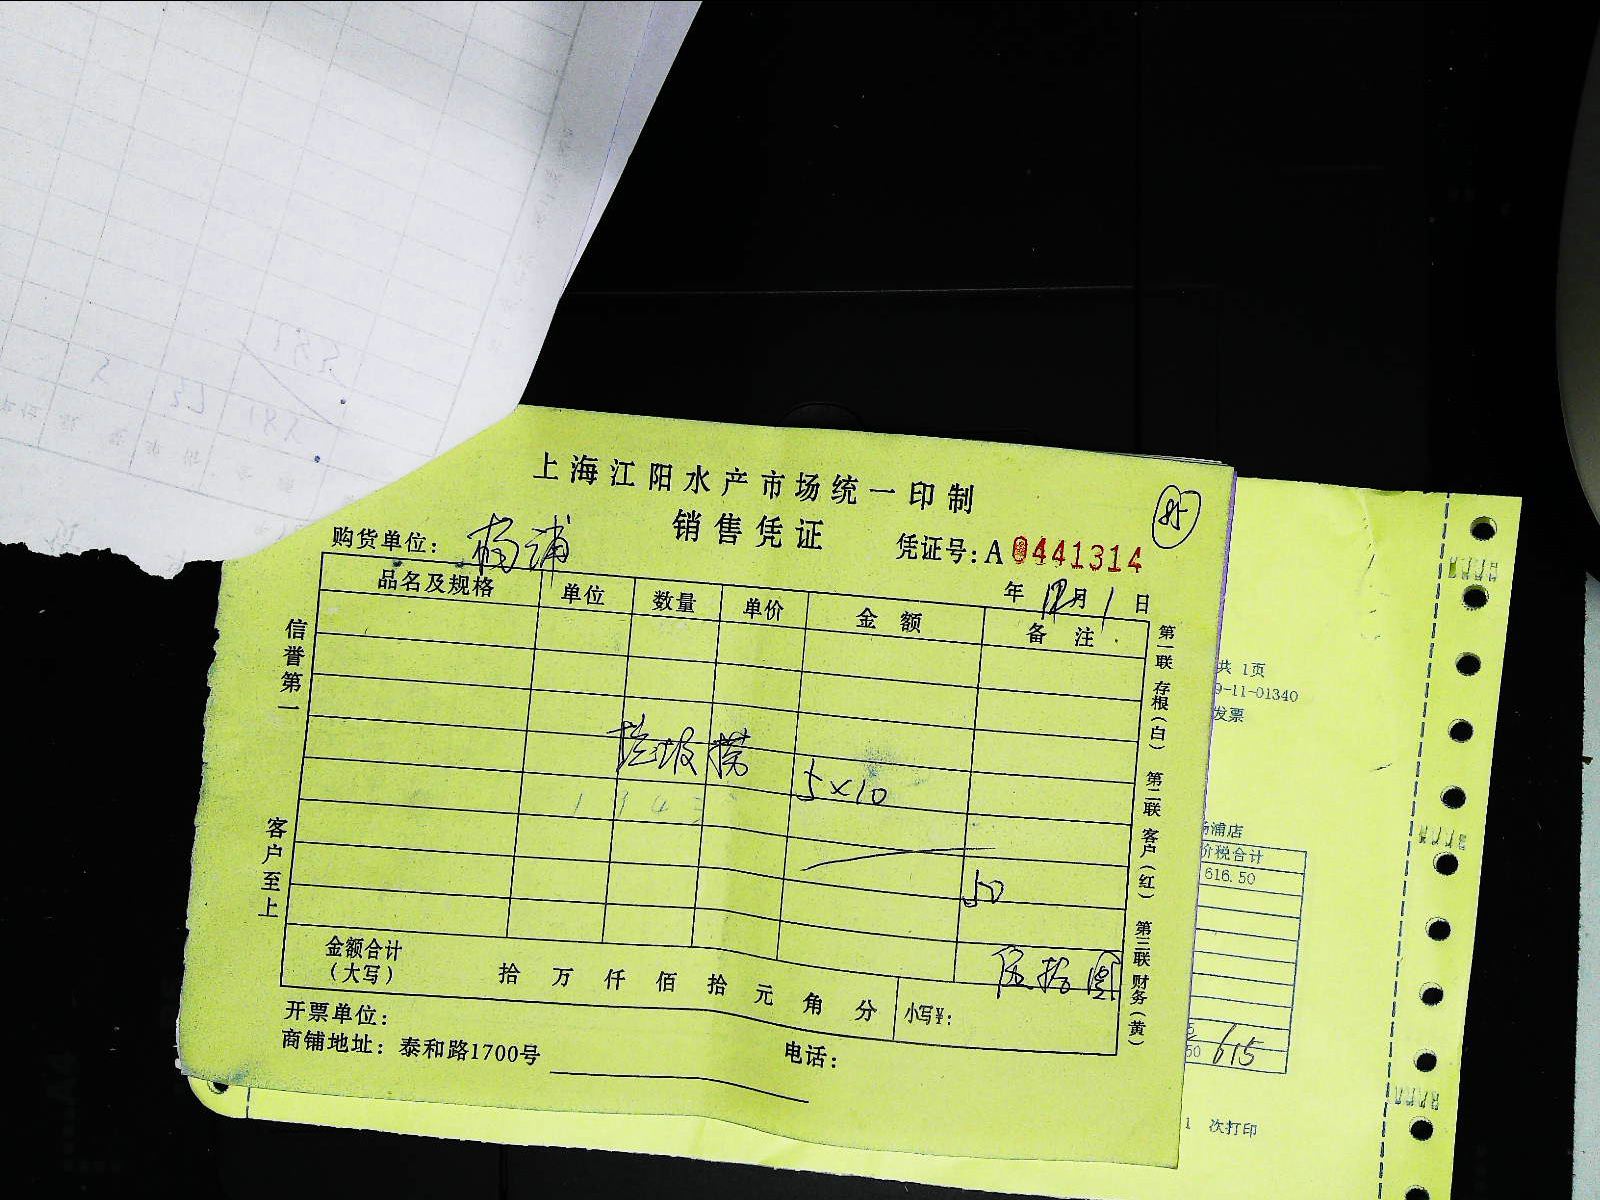 上海江阳水产市场统一印制
销售凭证
85
购货单位: 杨浦
凭证号: A 0441314
年 12月 1 日
品名及规格 单位 数量 单价 金额 备注
垃圾捞 5×10
50
伍拾圆
金额合计
(大写) 拾 万 仟 佰 拾 元 角 分 小写¥:
开票单位:
商铺地址: 泰和路1700号 电话:
信誉第一
客户至上
第一联 存根(白) 第二联 客户(红) 第三联 财务(黄)
共 1页
9-11-01340
发票
杨浦店
价税合计
616.50
50 615
1 次打印